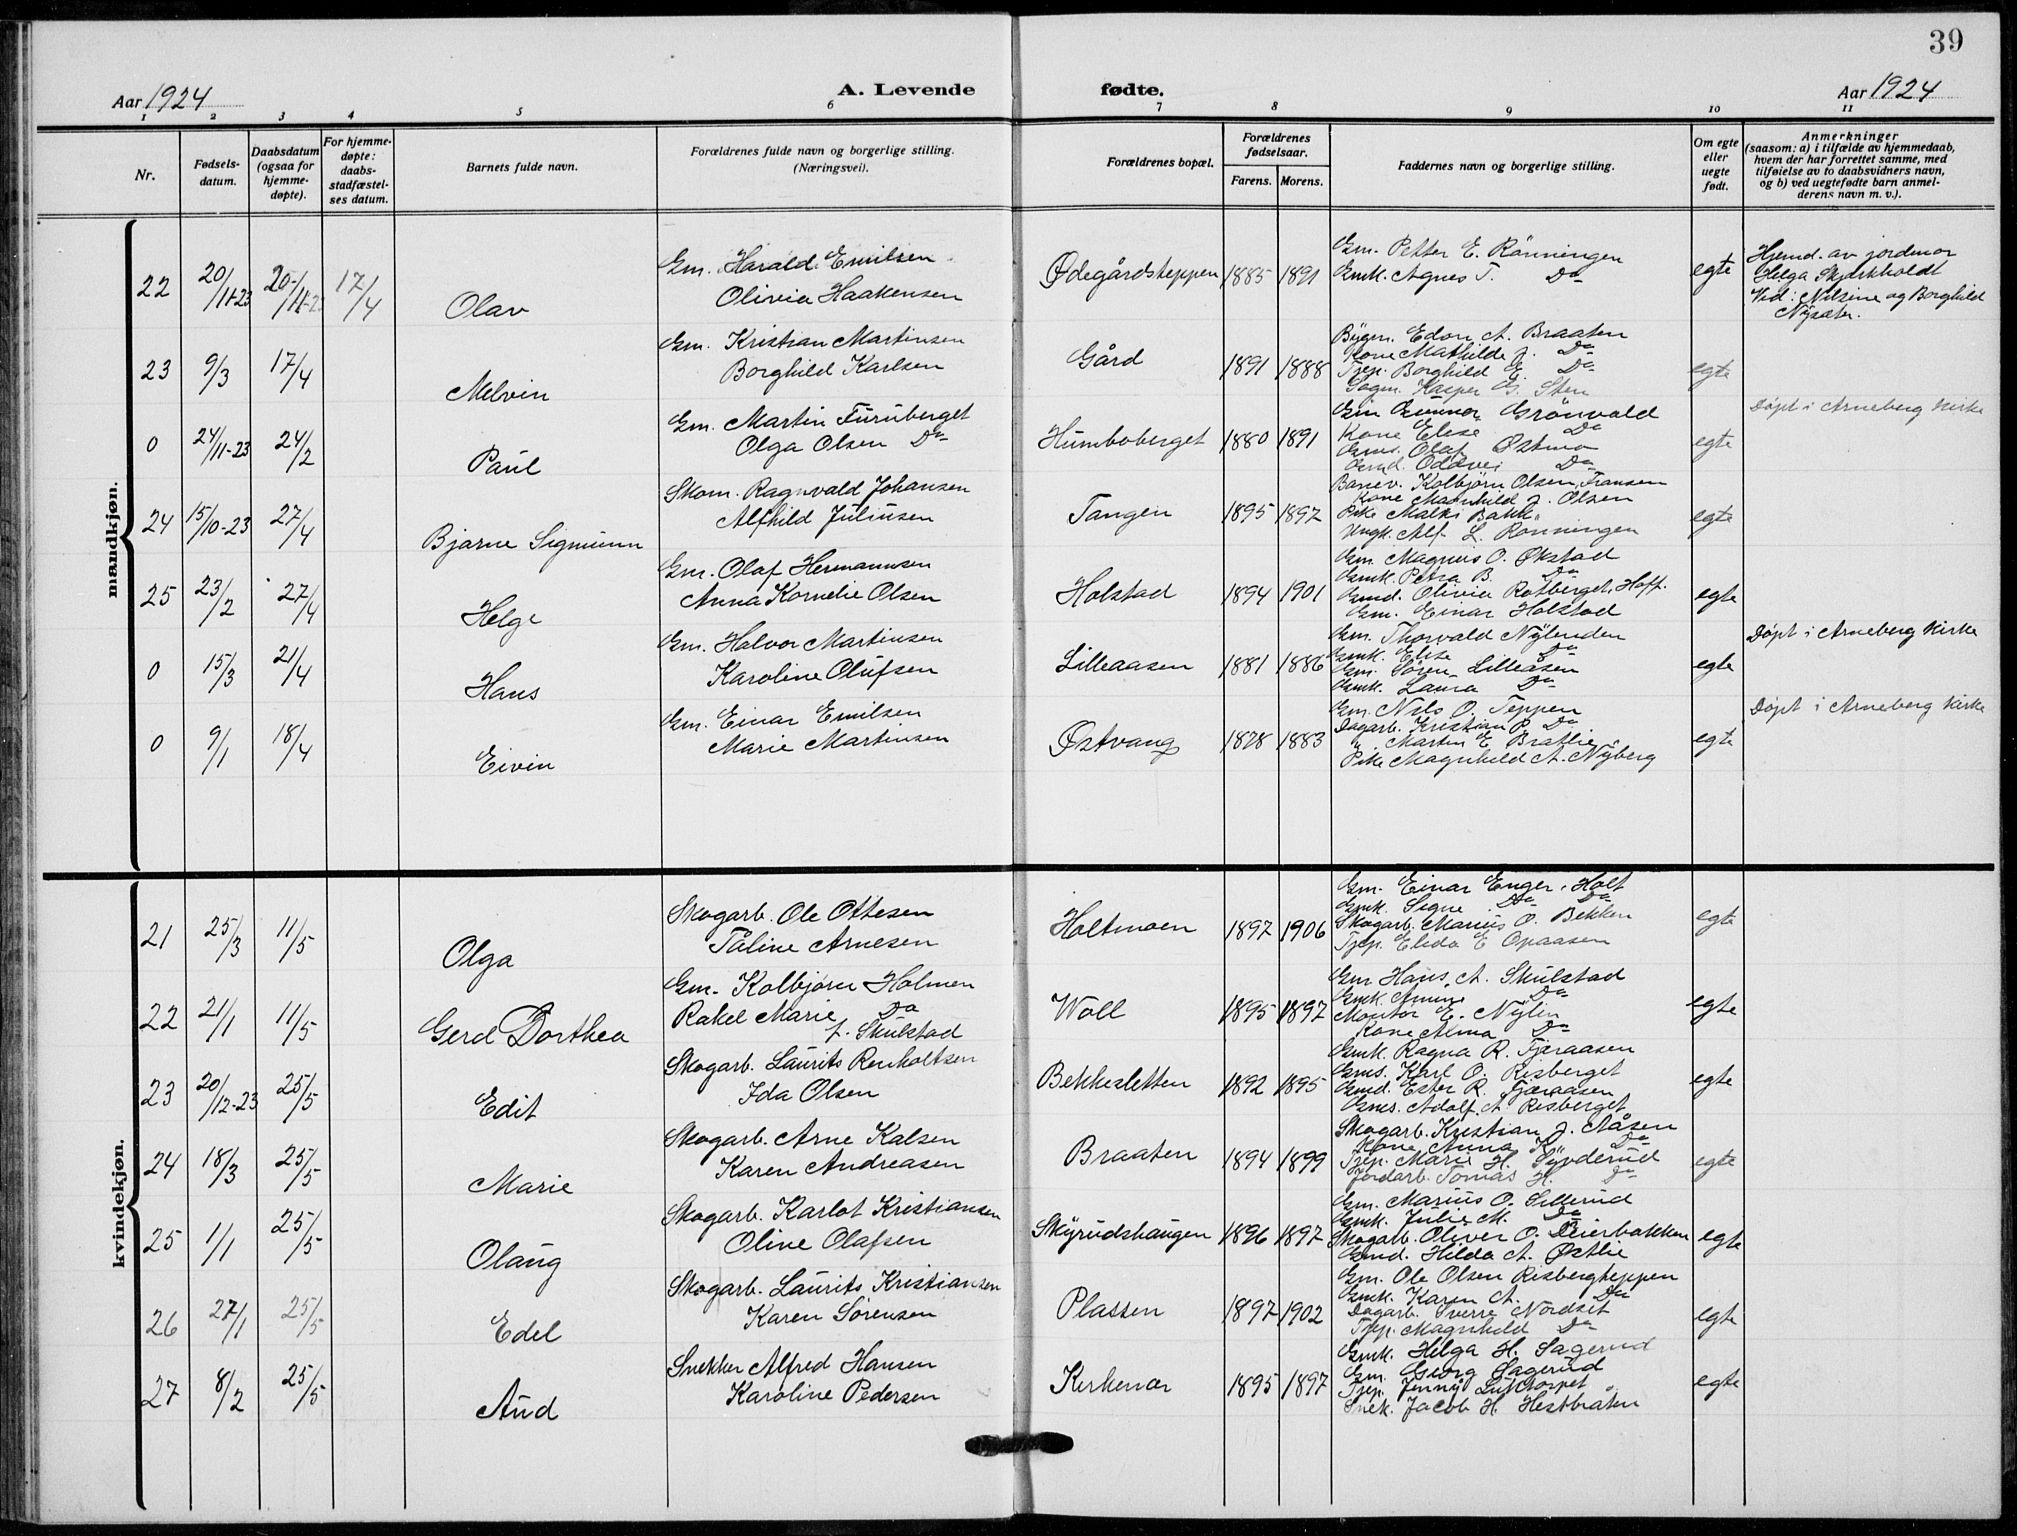 39
Aar 1924
A. Levende fødte.
Aar 1924
1 2 3 4 5 6 7 8 9 10 11
Nr.
Fødsels-
datum.
Daabsdatum
(ogsaa for
hjemme-
døpte).
For hjemme-
døpte:
daabs-
stadfæstel-
ses datum.
Barnets fulde navn.
Forældrenes fulde navn og borgerlige stilling.
(Næringsvei).
Forældrenes bopæl.
Forældrenes
fødselsaar.
Farens. Morens.
Faddernes navn og borgerlige stilling.
Om egte
eller
uegte
født.
Anmerkninger
(saasom: a) i tilfælde av hjemmedaab,
hvem der har forrettet samme, med
tilføielse av to daabsvidners navn,
og b) ved uegtefødte barn anmel-
derens navn m. v.).
mandkjøn.
22 20/11-23 20/11-23 17/4 Olav
Gm. Harald Emilsen
Olivia Haakensen
Ødegårdsteppen 1885 1891
Gm. Petter E. Rönningen
Gmk. Agnes T. Do
egte
Hjemd. av jordmor
Helga Skjækholdt
Vid: Nilsine og Borghild
Nysæter.
23 9/3 17/4 Melvin
Gm. Kristian Martinsen
Borghild Karlsen
Gård 1891 1888
Bygm. Edon A. Braaten
Kone Mathilde J. Do
Tjep. Borghild E. Do
Gagm. Kasper G. Sten
egte
0 24/11-23 24/2 Paul
Gm. Martin Furuberget
Olga Olsen Do
Humboberget 1880 1891
Gm Gunnar Grönvold
Kone Elise Do
Gms. Olaf Østmo
Gmd. Oddvei Do
egte
Døpt i Arneberg Kirke
24 15/10-23 27/4 Bjarne Sigmunn
Skom. Ragnvald Johansen
Alfhild Juliusen
Tangen 1895 1897
Banev. Kolbjörn Olsen, Fransen
Kone Magnhild J. Olsen
Pike Malki Bakk
Ungk. Alf L. Rönningen
egte
25 23/2 27/4 Helge
Gm. Olaf Hermannsen
Anna Kornelie Olsen
Holstad 1894 1901
Gm. Magnus O. Økstad
Gmk. Petra B. Do
Gmd. Olivia Rotberget, Hoff.
Gm. Einar Holstad
egte
0 15/3 21/4 Hans
Gm. Halvor Martinsen
Karoline Olufsen
Lilleaasen 1881 1886
Gm. Thorvald Nylenden
Gmk. Elise Do
Gm. Sören Lilleåsen
Gmk. Laura Do
egte
Døpt i Arneberg Kirke
0 9/1 18/4 Eivin
Gm. Einar Emilsen
Marie Martinsen
Østvang 1878 1883
Gm. Nils O. Teppen
Dagarb. Kristian P. Do
" Martin E. Bratlie
Pike Magnhild A. Nyberg
egte
Døpt i Arneberg Kirke
kvindekjøn.
21 25/3 11/5 Olga
Skogarb. Ole Ottesen
Tåline Arnesen
Holtmoen 1897 1906
Gm. Einar Enger, Holt
Gmk. Signe Do Do
Skogarb. Marius O. Bekken
Tjep. Elida E Opaasen
egte
22 21/1 11/5 Gerd Dorthea
Gm. Kolbjörn Holmen
Rakel Marie Do
f. Skulstad
Woll 1895 1897
Gm Hans A. Skulstad
Gmk. Do
Montör E. Nylin
Kone Alma Do
egte
23 20/12-23 25/5 Edit
Skogarb. Laurits Renholtsen
Ida Olsen
Bekkesletten 1892 1895
Gmk. Ragna R. Fjæraasen
Gms. Karl O. Risberget
Gmd. Ester R. Fjæraasen
Gms. Adolf A. Risberget
egte
24 18/3 25/5 Marie
Skogarb. Arne Kalsen
Karen Andreasen
Braaten 1894 1899
Skogarb. Kristian J. Aåsen
Kone Anna K. Do
Tjep. Marie H. Synderud
Jordarb. Tomas H. Do
egte
25 1/1 25/5 Olaug
Skogarb. Karlot Kristiansen
Oline Olafsen
Skyrudshaugen 1896 1897
Gm. Marius O. Sillerud
Gmk. Julie M. Do
Skogarb. Oliver O. Deierbakken
Gmd. Hilda A. Østlie
egte
26 27/1 25/5 Edel
Skogarb. Laurits Kristiansen
Karen Sörensen
Plassen 1897 1902
Gm. Ole Olsen Risbergteppen
Gmk. Karen A. Do
Dagarb. Sverre Nordset
Tjep. Magnhild Do
egte
27 8/2 25/5 Aud
Snekker Alfred Hansen
Karoline Pedersen
Kirkenær 1895 1897
Gmk. Helga H. Sagerud
Gm. Georg Sagerud
Tjep. Jenny
Snek. Jacob H. Hestbraten
egte